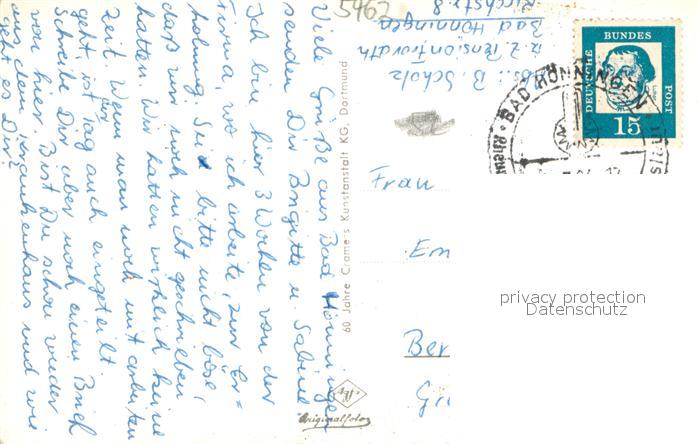 Viele Grüße aus Bad Hönningen
senden Dir Brigitte u. Sabine
Ich bin hier 3 Wochen von der
Firma, wo ich arbeite, zur Er=
holung. Sei bitte nicht böse,
daß wir noch nicht geschrieben
hatten. Wir hatten wirklich keine
Zeit. Wenn man noch mit arbeiten
geht, ist der Tag auch eingeteilt.
Schreibe Dir aber noch einen Brief
von hier. Bist Du schon wieder
aus dem Krankenhaus und wie
geht es Dir?
60 Jahre Cramers Kunstanstalt KG, Dortmund
5462
Abs.: B. Scholz
z. Z. Pension
Bad Hönningen
Kirchstr. 8
Frau
Em
Ber
Gr
Originalfoto
DEUTSCHE BUNDES POST
15
BAD HÖNNINGEN
privacy protection
Datenschutz